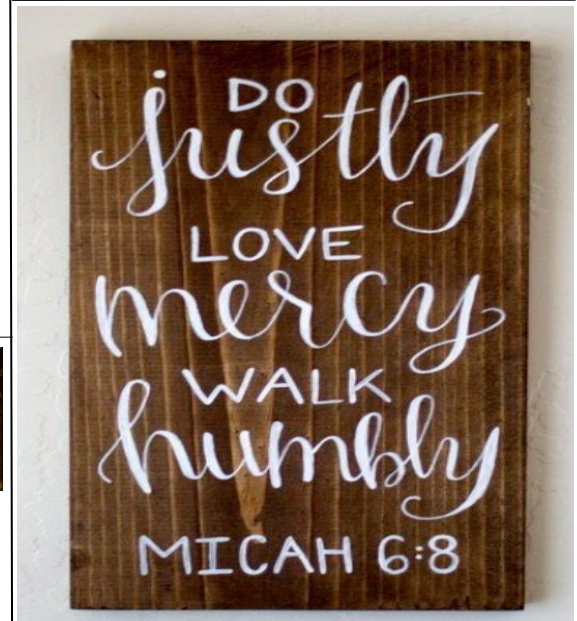 DO
justly
LOVE
mercy
WALK
humbly
MICAH 6:8